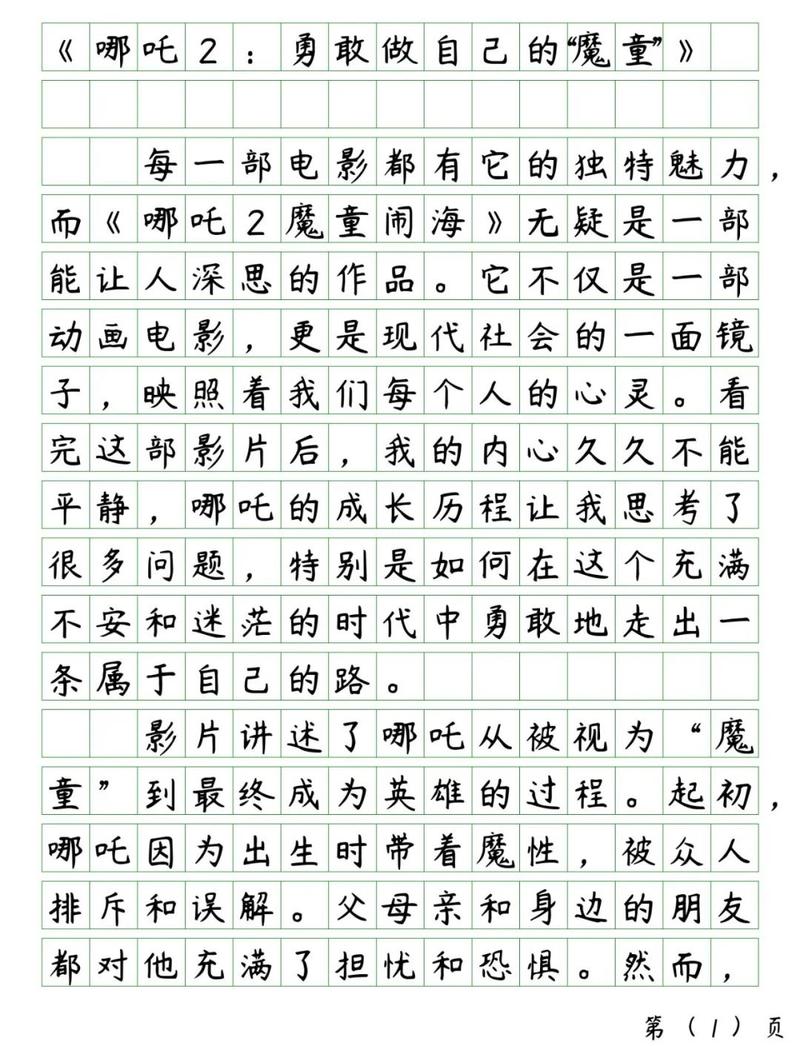 《哪吒2：勇敢做自己的“魔童”》
每一部电影都有它的独特魅力，
而《哪吒2魔童闹海》无疑是一部
能让人深思的作品。它不仅是一部
动画电影，更是现代社会的一面镜
子，映照着我们每个人的心灵。看
完这部影片后，我的内心久久不能
平静，哪吒的成长历程让我思考了
很多问题，特别是如何在这个充满
不安和迷茫的时代中勇敢地走出一
条属于自己的路。
影片讲述了哪吒从被视为“魔
童”到最终成为英雄的过程。起初，
哪吒因为出生时带着魔性，被众人
排斥和误解。父母亲和身边的朋友
都对他充满了担忧和恐惧。然而，
第（1）页